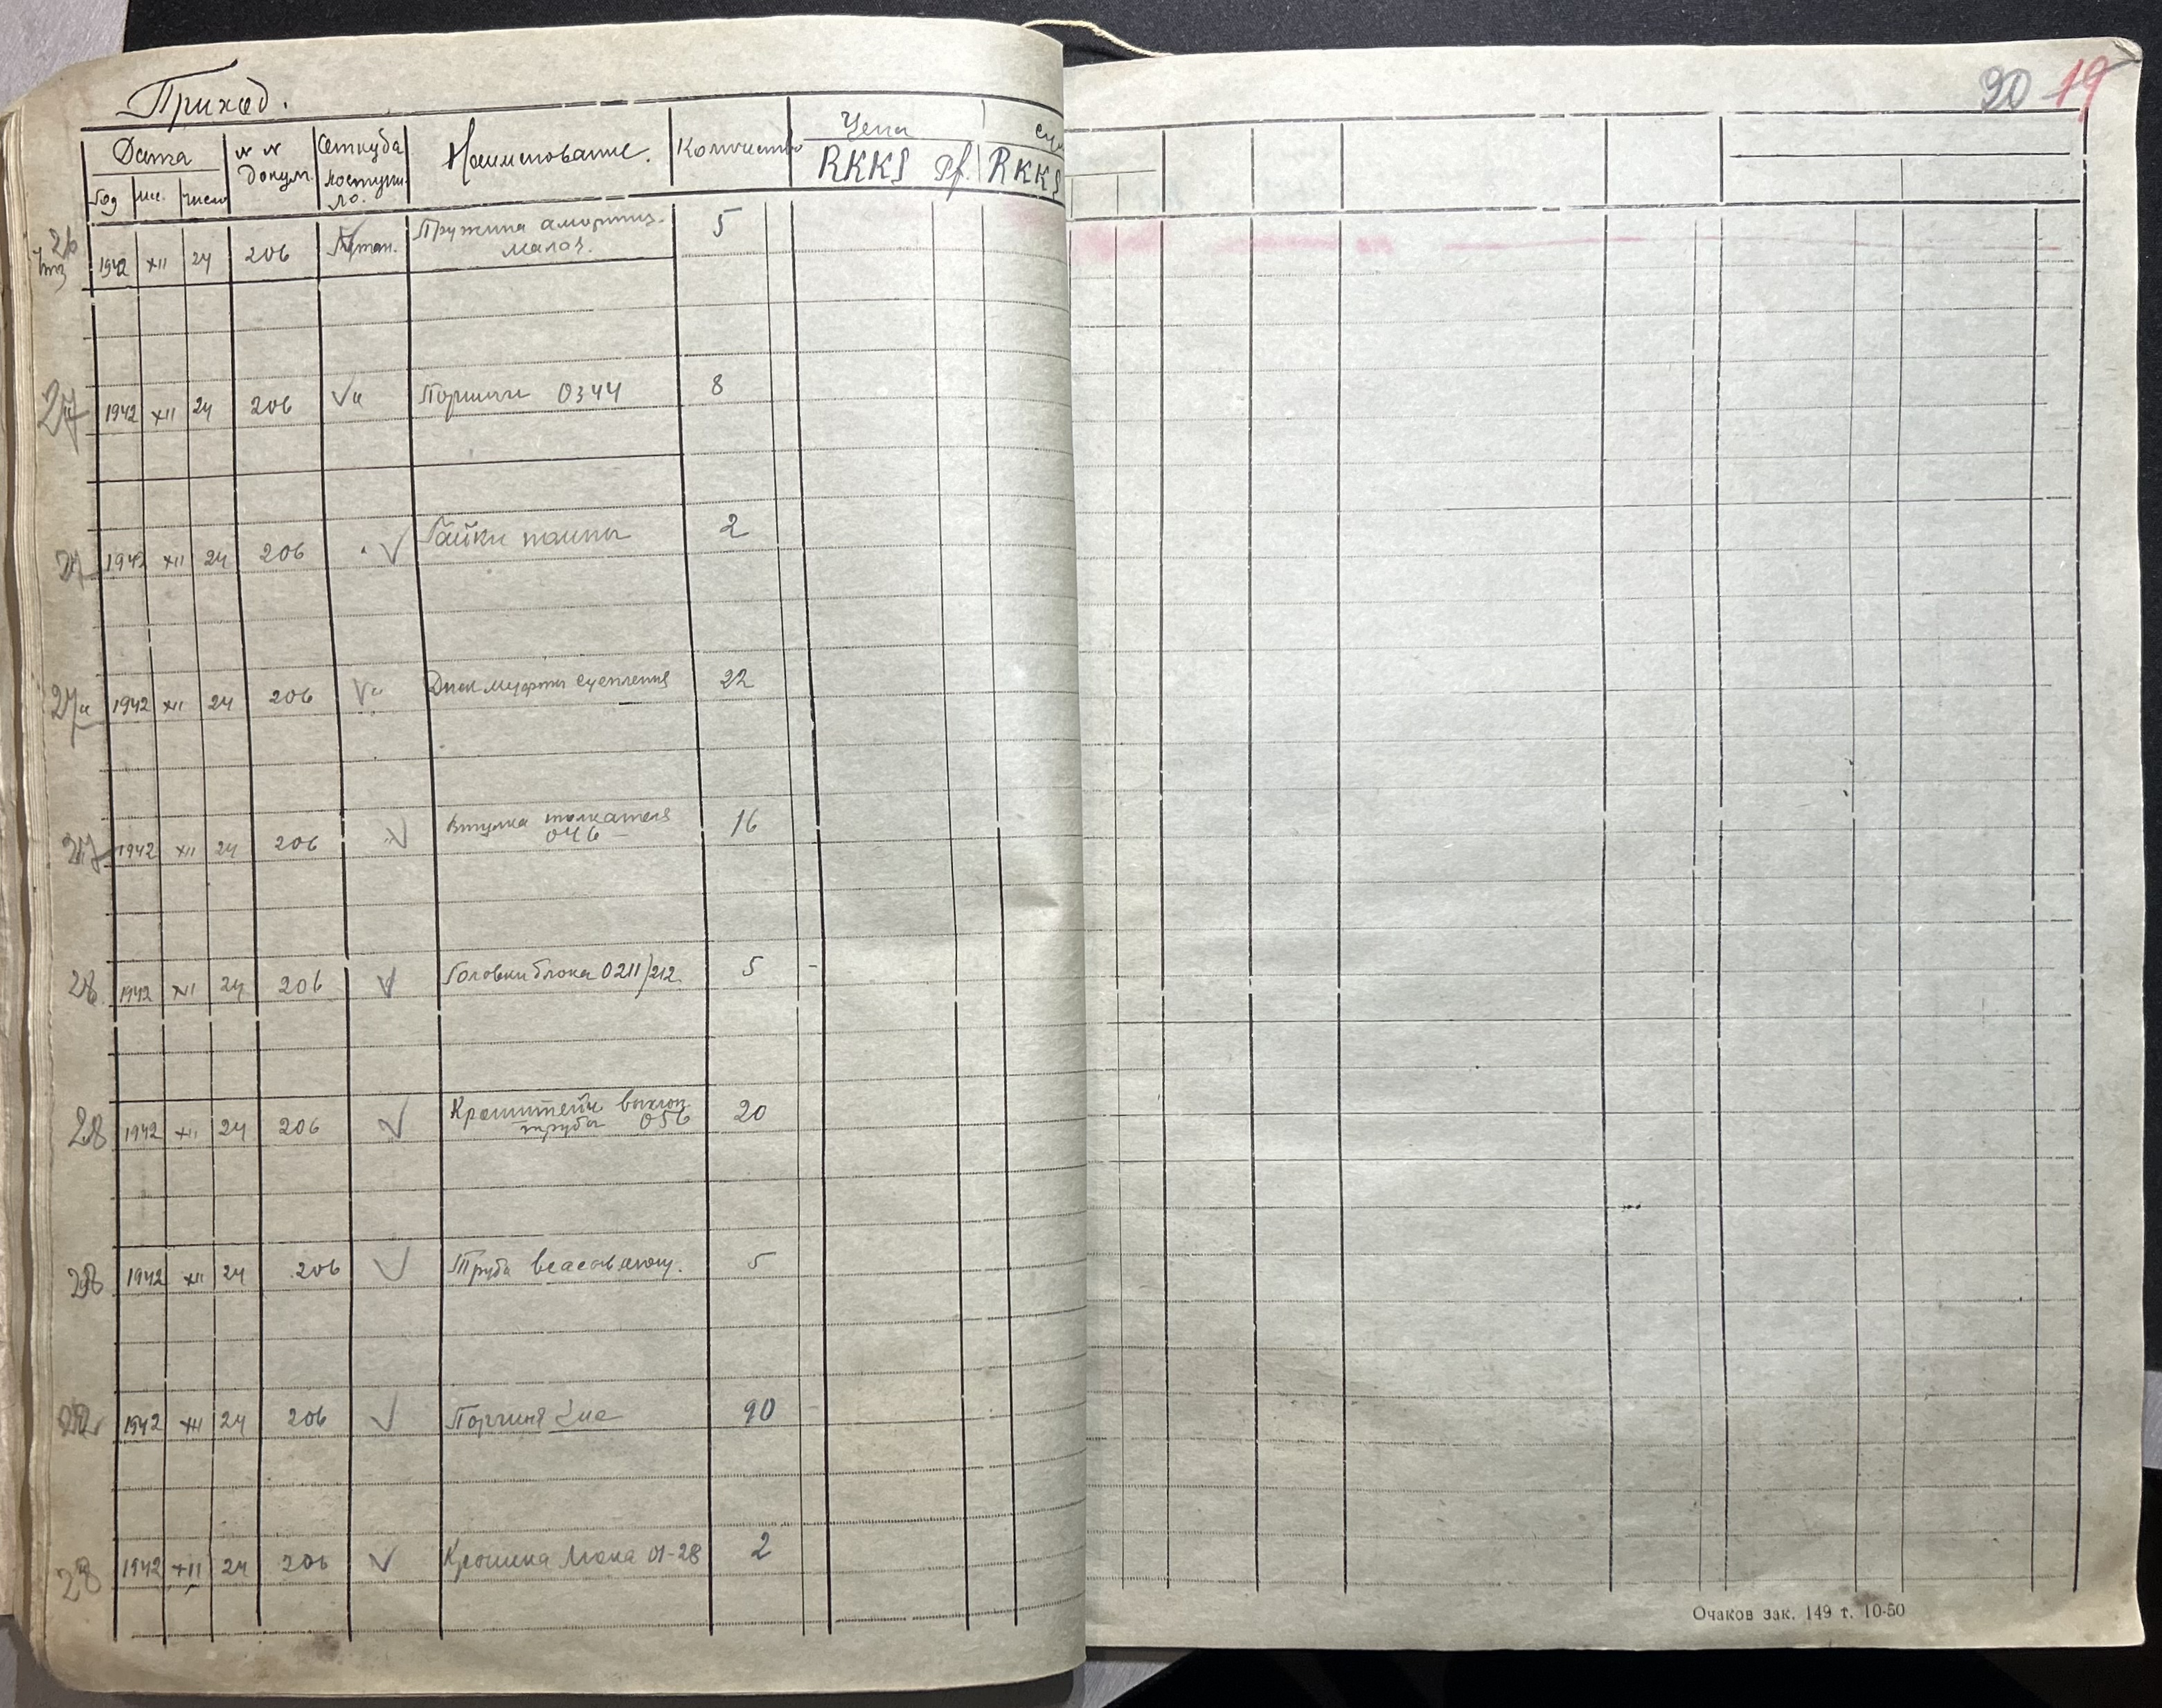 90 19
Приход.
Дата
Год мес. число
№ № докум.
Откуда поступило.
Наименование.
Количество
Цена
RKKS Pf.
RKKS
26 1942 XII 24 206 Пружина амортиз. малоз. 5
27 1942 XII 24 206 √ " Поршни 0344 8
27 1942 XII 24 206 √ Гайки помпы 2
27 1942 XII 24 206 √ " Диск муфты сцепления 22
27 1942 XII 24 206 √ Втулка толкателя 046 16
28 1942 XII 24 206 √ Головки блока 0211/212 5 -
28 1942 XII 24 206 √ Кронштейн выхлоп. трубы 056 20
28 1942 XII 24 206 √ Труба всасывающ. 5
1942 XII 24 206 √ Поршня Зис 90
28 1942 XII 24 206 √ Крышка блока 01-28 2
Очаков зак. 149 т. 10-50